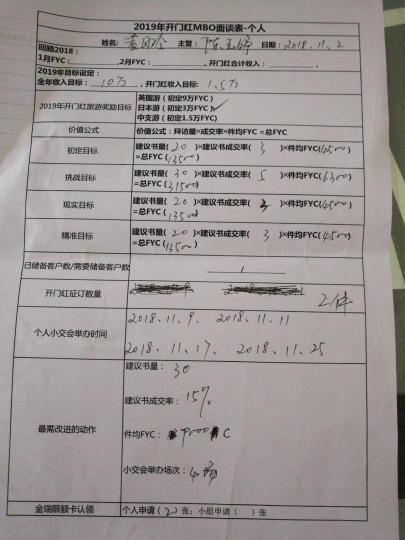 2019年开门红MBO面谈表-个人
姓名: 黄凤玲 主管: 日期: 2018.11.2
回顾2018:
1月FYC: ,2月FYC: ,开门红合计收入: .
2019年目标设定:
全年收入目标: 10万 ,开门红收入目标: 1.5万
2019年开门红旅游奖励目标
英国游(初定9万FYC)
日本游(初定3万FYC)✓
中支游(初定1.5万FYC)
价值公式 价值公式: 拜访量×成交率×件均FYC=总FYC
初定目标 建议书量( 20 )×建议书成交率( 3 )×件均FYC(4500)
=总FYC(13500)
挑战目标 建议书量( 30 )×建议书成交率( 5 )×件均FYC(6300)
=总FYC(31500)
现实目标 建议书量( 20 )×建议书成交率( 3 )×件均FYC(4500)
=总FYC(13500)
精准目标 建议书量( 20 )×建议书成交率( 3 )×件均FYC(4500)
=总FYC(13500)
已储备客户数/需要储备客户数
开门红征订数量 2件
个人小交会举办时间
2018.11.9、 2018.11.11
2018.11.17、 2018.11.25
最需改进的动作
建议书量: 30
建议书成交率: 15%
件均FYC: 9000 C
小交会举办场次: 4场
金瑞限额卡认领 个人申请( 2 )张; 小组申请( )张